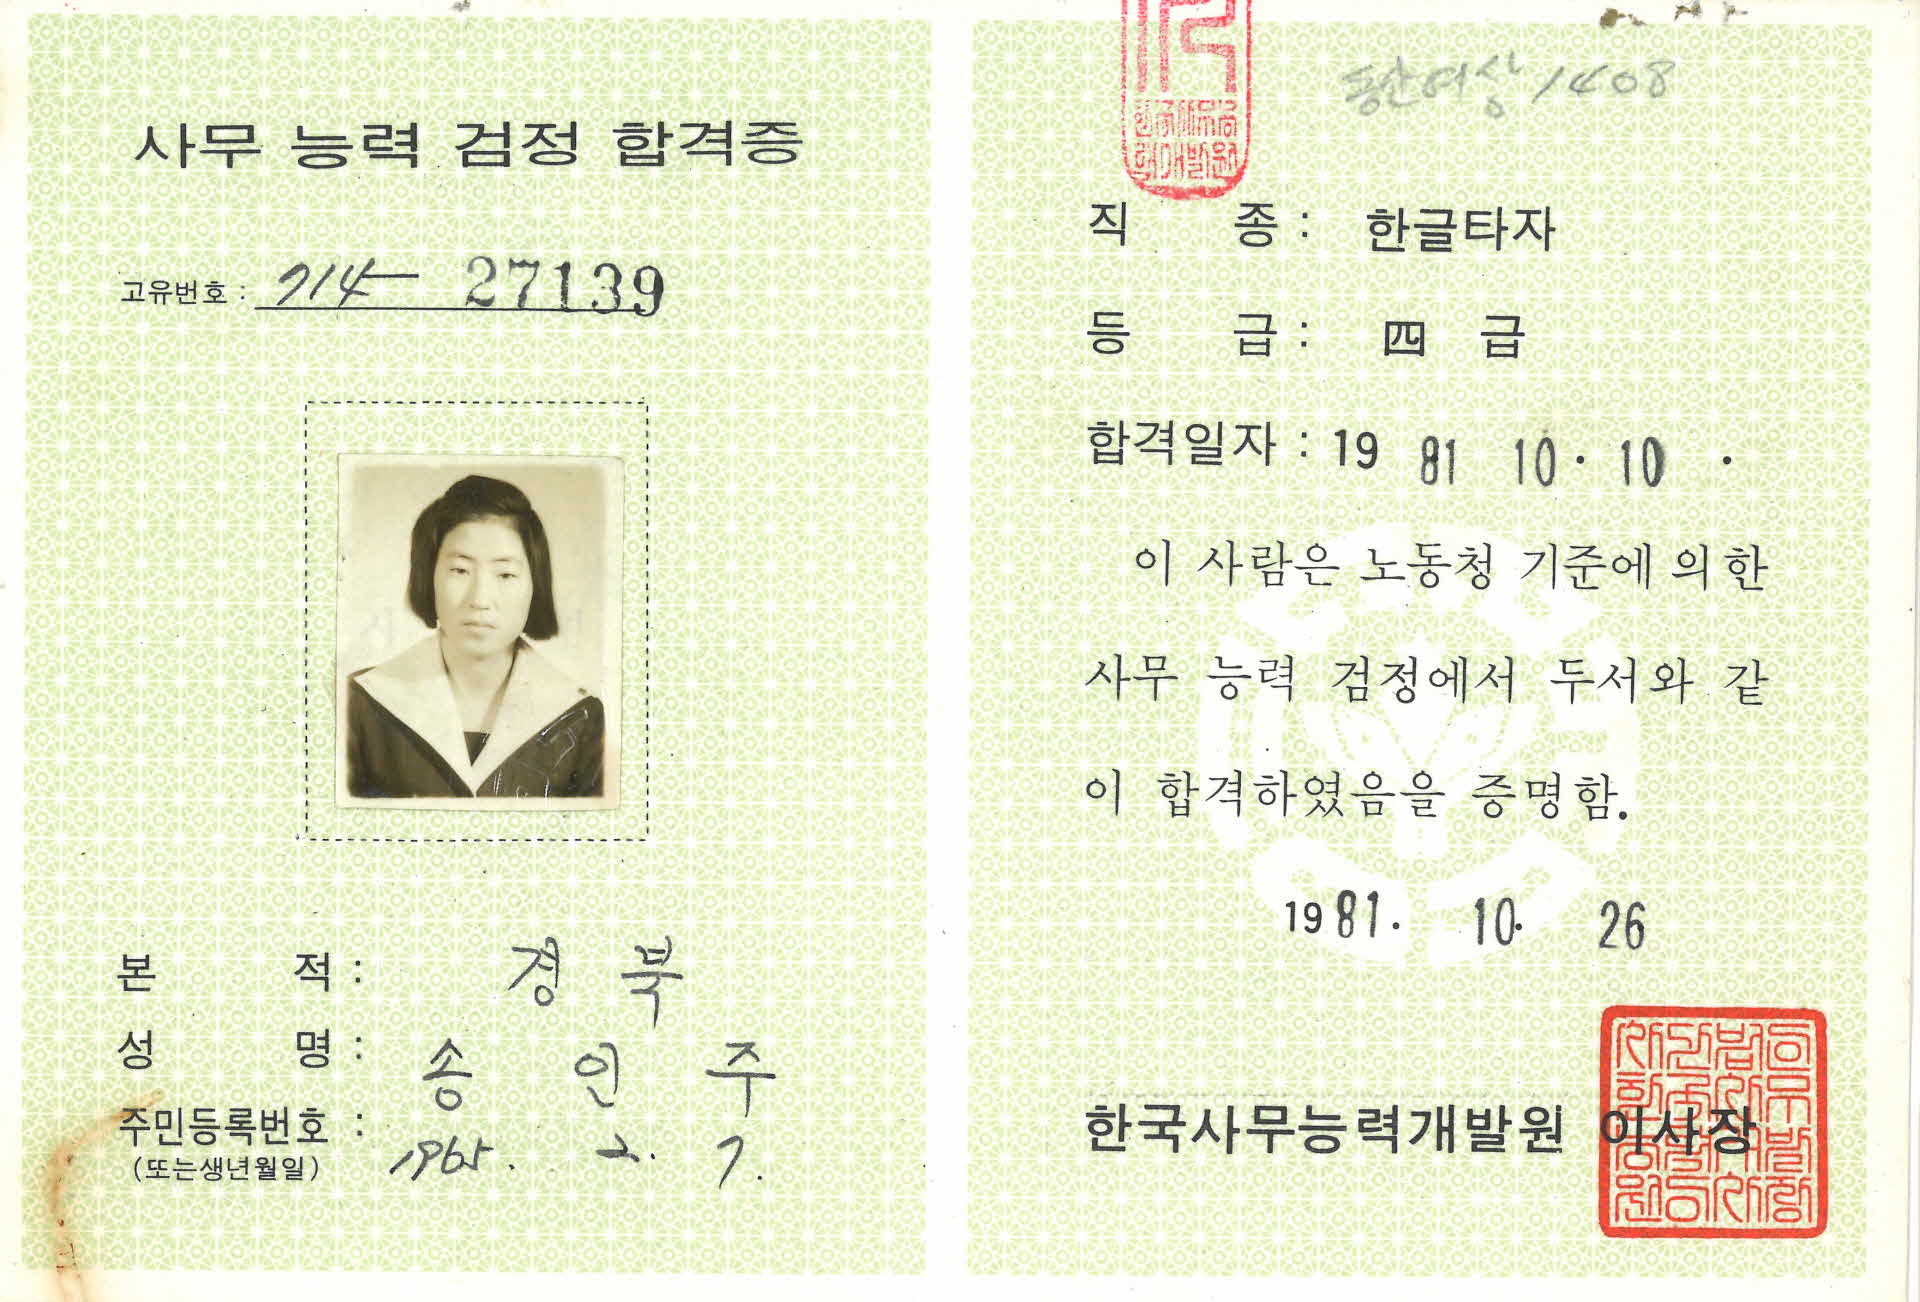 사무 능력 검정 합격증
고유번호 : 714- 27139
본 적 : 경 북
성 명 : 송 인 주
주민등록번호 : 1965. 2. 7.
(또는생년월일)
동산여상 1408
직 종 : 한글타자
등 급 : 四 급
합격일자 : 19 81 10 . 10 .
이 사람은 노동청 기준에 의한
사무 능력 검정에서 두서와 같
이 합격하였음을 증명함.
1981. 10. 26
한국사무능력개발원 이사장